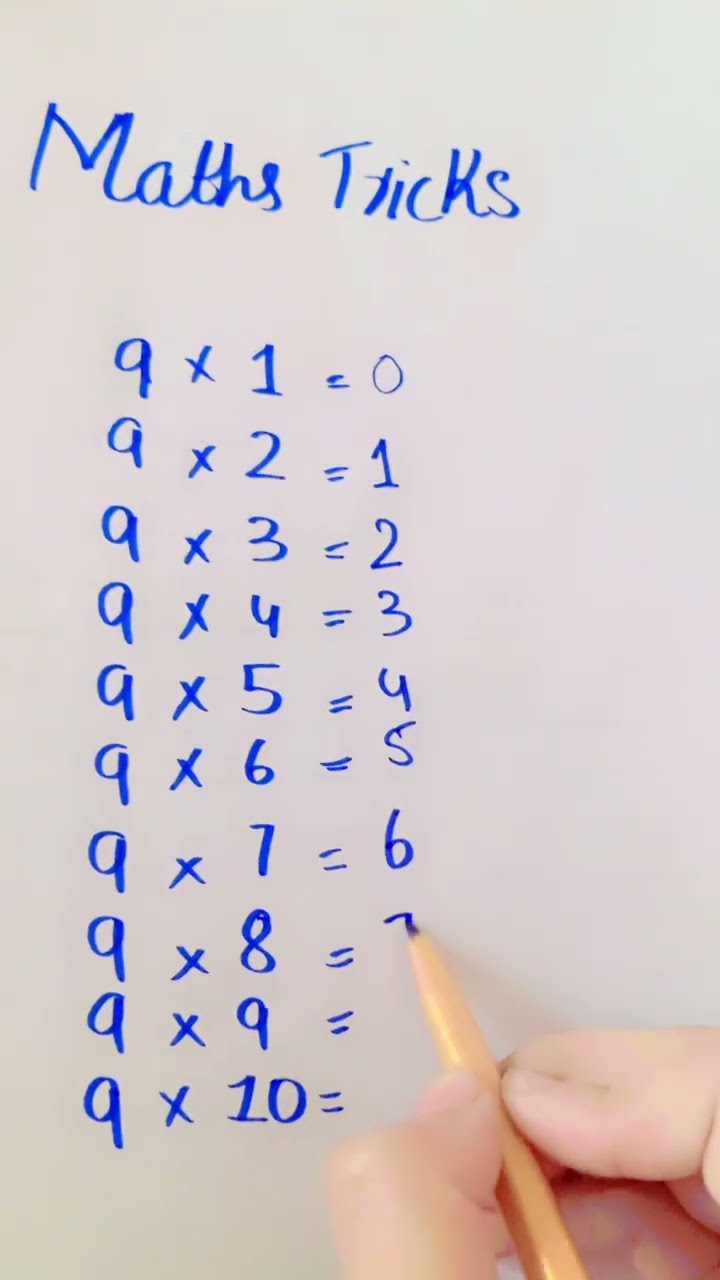 Maths Tricks
9 × 1 = 0
9 × 2 = 1
9 × 3 = 2
9 × 4 = 3
9 × 5 = 4
9 × 6 = 5
9 × 7 = 6
9 × 8 =
9 × 9 =
9 × 10 =